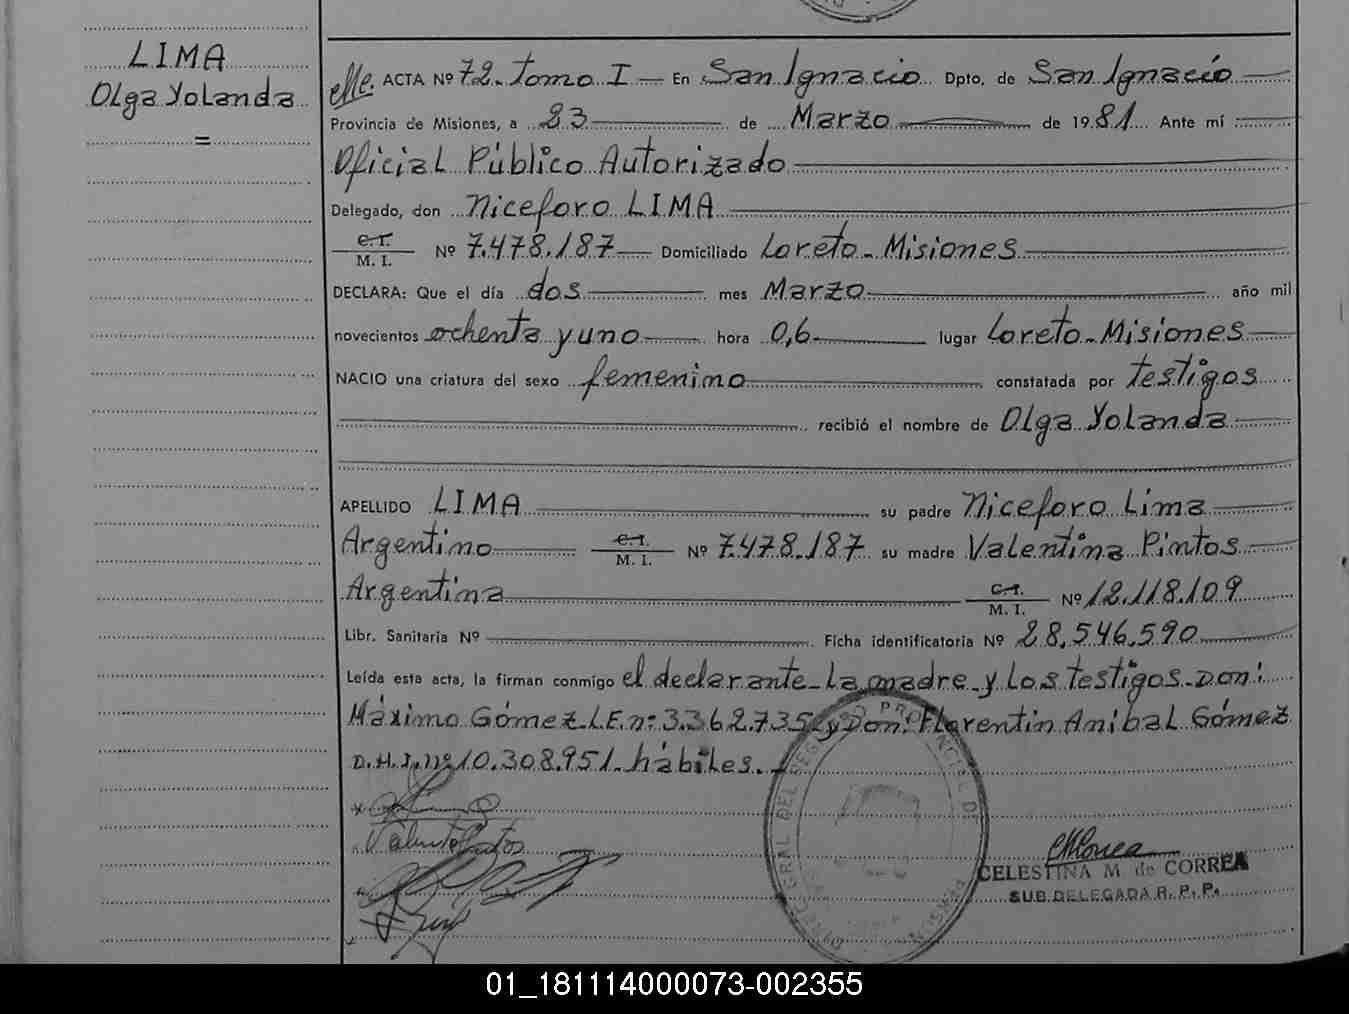 LIMA
Olga Yolanda
=
ACTA Nº 72 - tomo I — En San Ignacio Dpto. de San Ignacio
Provincia de Misiones, a 23 de Marzo de 1981 Ante mí
Oficial Público Autorizado
Delegado, don Niceforo LIMA
C.I. M. I. Nº 7.478.187 Domiciliado Loreto - Misiones
DECLARA: Que el día dos mes Marzo año mil
novecientos ochenta y uno hora 0,6 lugar Loreto - Misiones
NACIO una criatura del sexo femenino constatada por testigos
recibió el nombre de Olga Yolanda
APELLIDO LIMA su padre Niceforo Lima
Argentino C.I. M. I. Nº 7.478.187 su madre Valentina Pintos
Argentina C.I. M. I. Nº 12.118.109
Libr. Sanitaria Nº Ficha identificatoria Nº 28.546.590
Leída esta acta, la firman conmigo el declarante - La madre - y Los testigos - Don:
Máximo Gómez - L.E. nº 3.362.735 y Don: Florentin Anibal Gómez
D.N.I. nº 10.308.951 - hábiles. -
CELESTINA M de CORREA
SUB DELEGADA R. P. P.
01_181114000073-002355